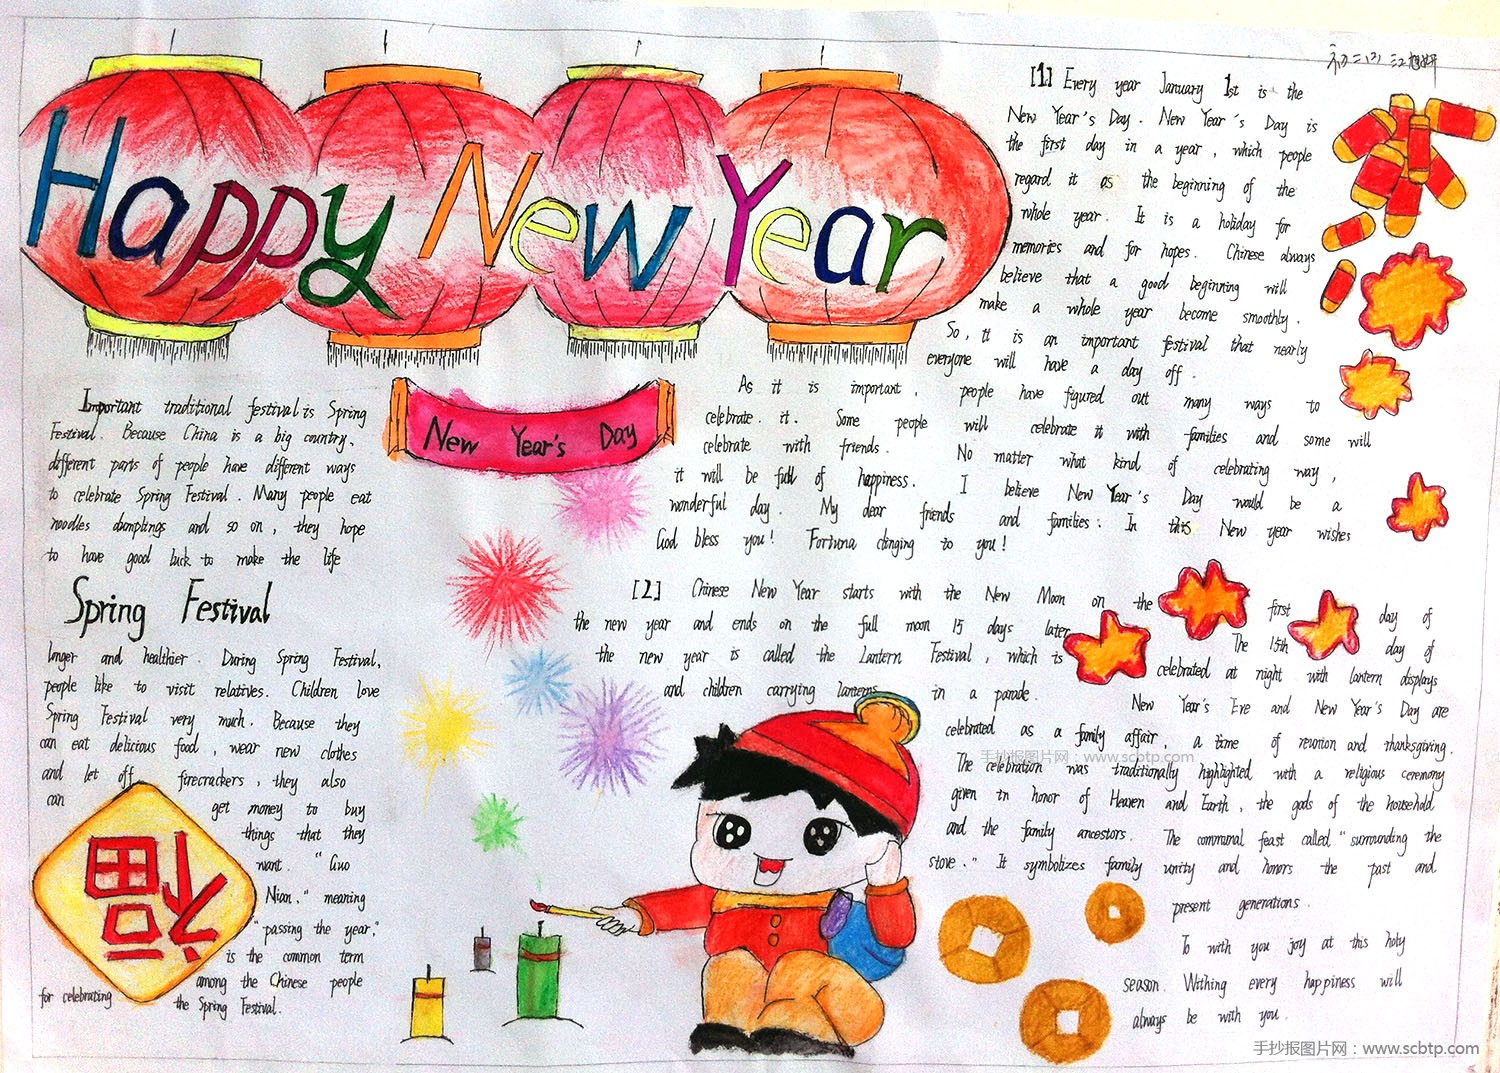 Happy New Year
初二(3) 江
[1] Every year January 1st is the
New Year's Day. New Year's Day is
the first day in a year, which people
regard it as the beginning of the
whole year. It is a holiday for
memories and for hopes. Chinese always
believe that a good beginning will
make a whole year become smoothly.
So, it is an important festival that nearly
everyone will have a day off.
New Year's Day
As it is important, people have figured out many ways to
celebrate. it. Some people will celebrate it with families and some will
celebrate with friends. No matter what kind of celebrating way,
it will be full of happiness. I believe New Year's Day would be a
wonderful day. My dear friends and families. In this New year wishes
God bless you! Fortuna clinging to you!
Important traditional festival is Spring
Festival. Because China is a big country,
different parts of people have different ways
to celebrate Spring Festival. Many people eat
noodles dbmplings and so on, they hope
to have good luck to make the life
Spring Festival
longer and healthier. During Spring Festival,
people like to visit relatives. Children love
Spring Festival very much. Because they
can eat delicious food, wear new clothes
and let off firecrackers, they also
can get money to buy
things that they
want. "Guo
Nian," meaning
"passing the year,"
is the common term
among the Chinese people
for celebrating the Spring Festival.
福
[2] Chinese New Year starts with the New Moon on the first day of
the new year and ends on the full moon 15 days later. The 15th day of
the new year is called the Lantern Festival, which is celebrated at night with lantern displays
and children carrying lanterns in a parade.
New Year's Eve and New Year's Day are
celebrated as a family affair, a time of reunion and thanksgiving.
The celebration was traditionally highlighted with a religious ceremony
given in honor of Heaven and Earth, the gods of the household
and the family ancestors. The communal feast called "surrounding the
stove." It symbolizes family unity and honors the past and
present generations.
To with you joy at this holy
season. Withing every happiness will
always be with you.
手抄报图片网：www.scbtp.com
手抄报图片网：www.scbtp.com